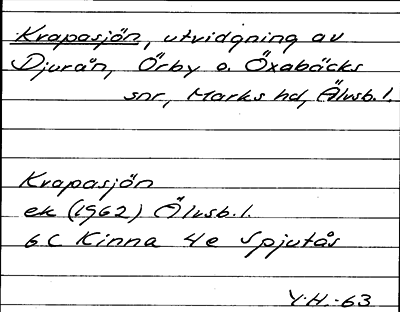 Krapasjön, utvidgning av
Djurån, Örby o. Öxabäcks
snr, Marks hd, Älvsb. l.
Krapasjön
ek (1962) Älvsb. l.
6 C Kinna 4 e Spjutås
Y.H. -63